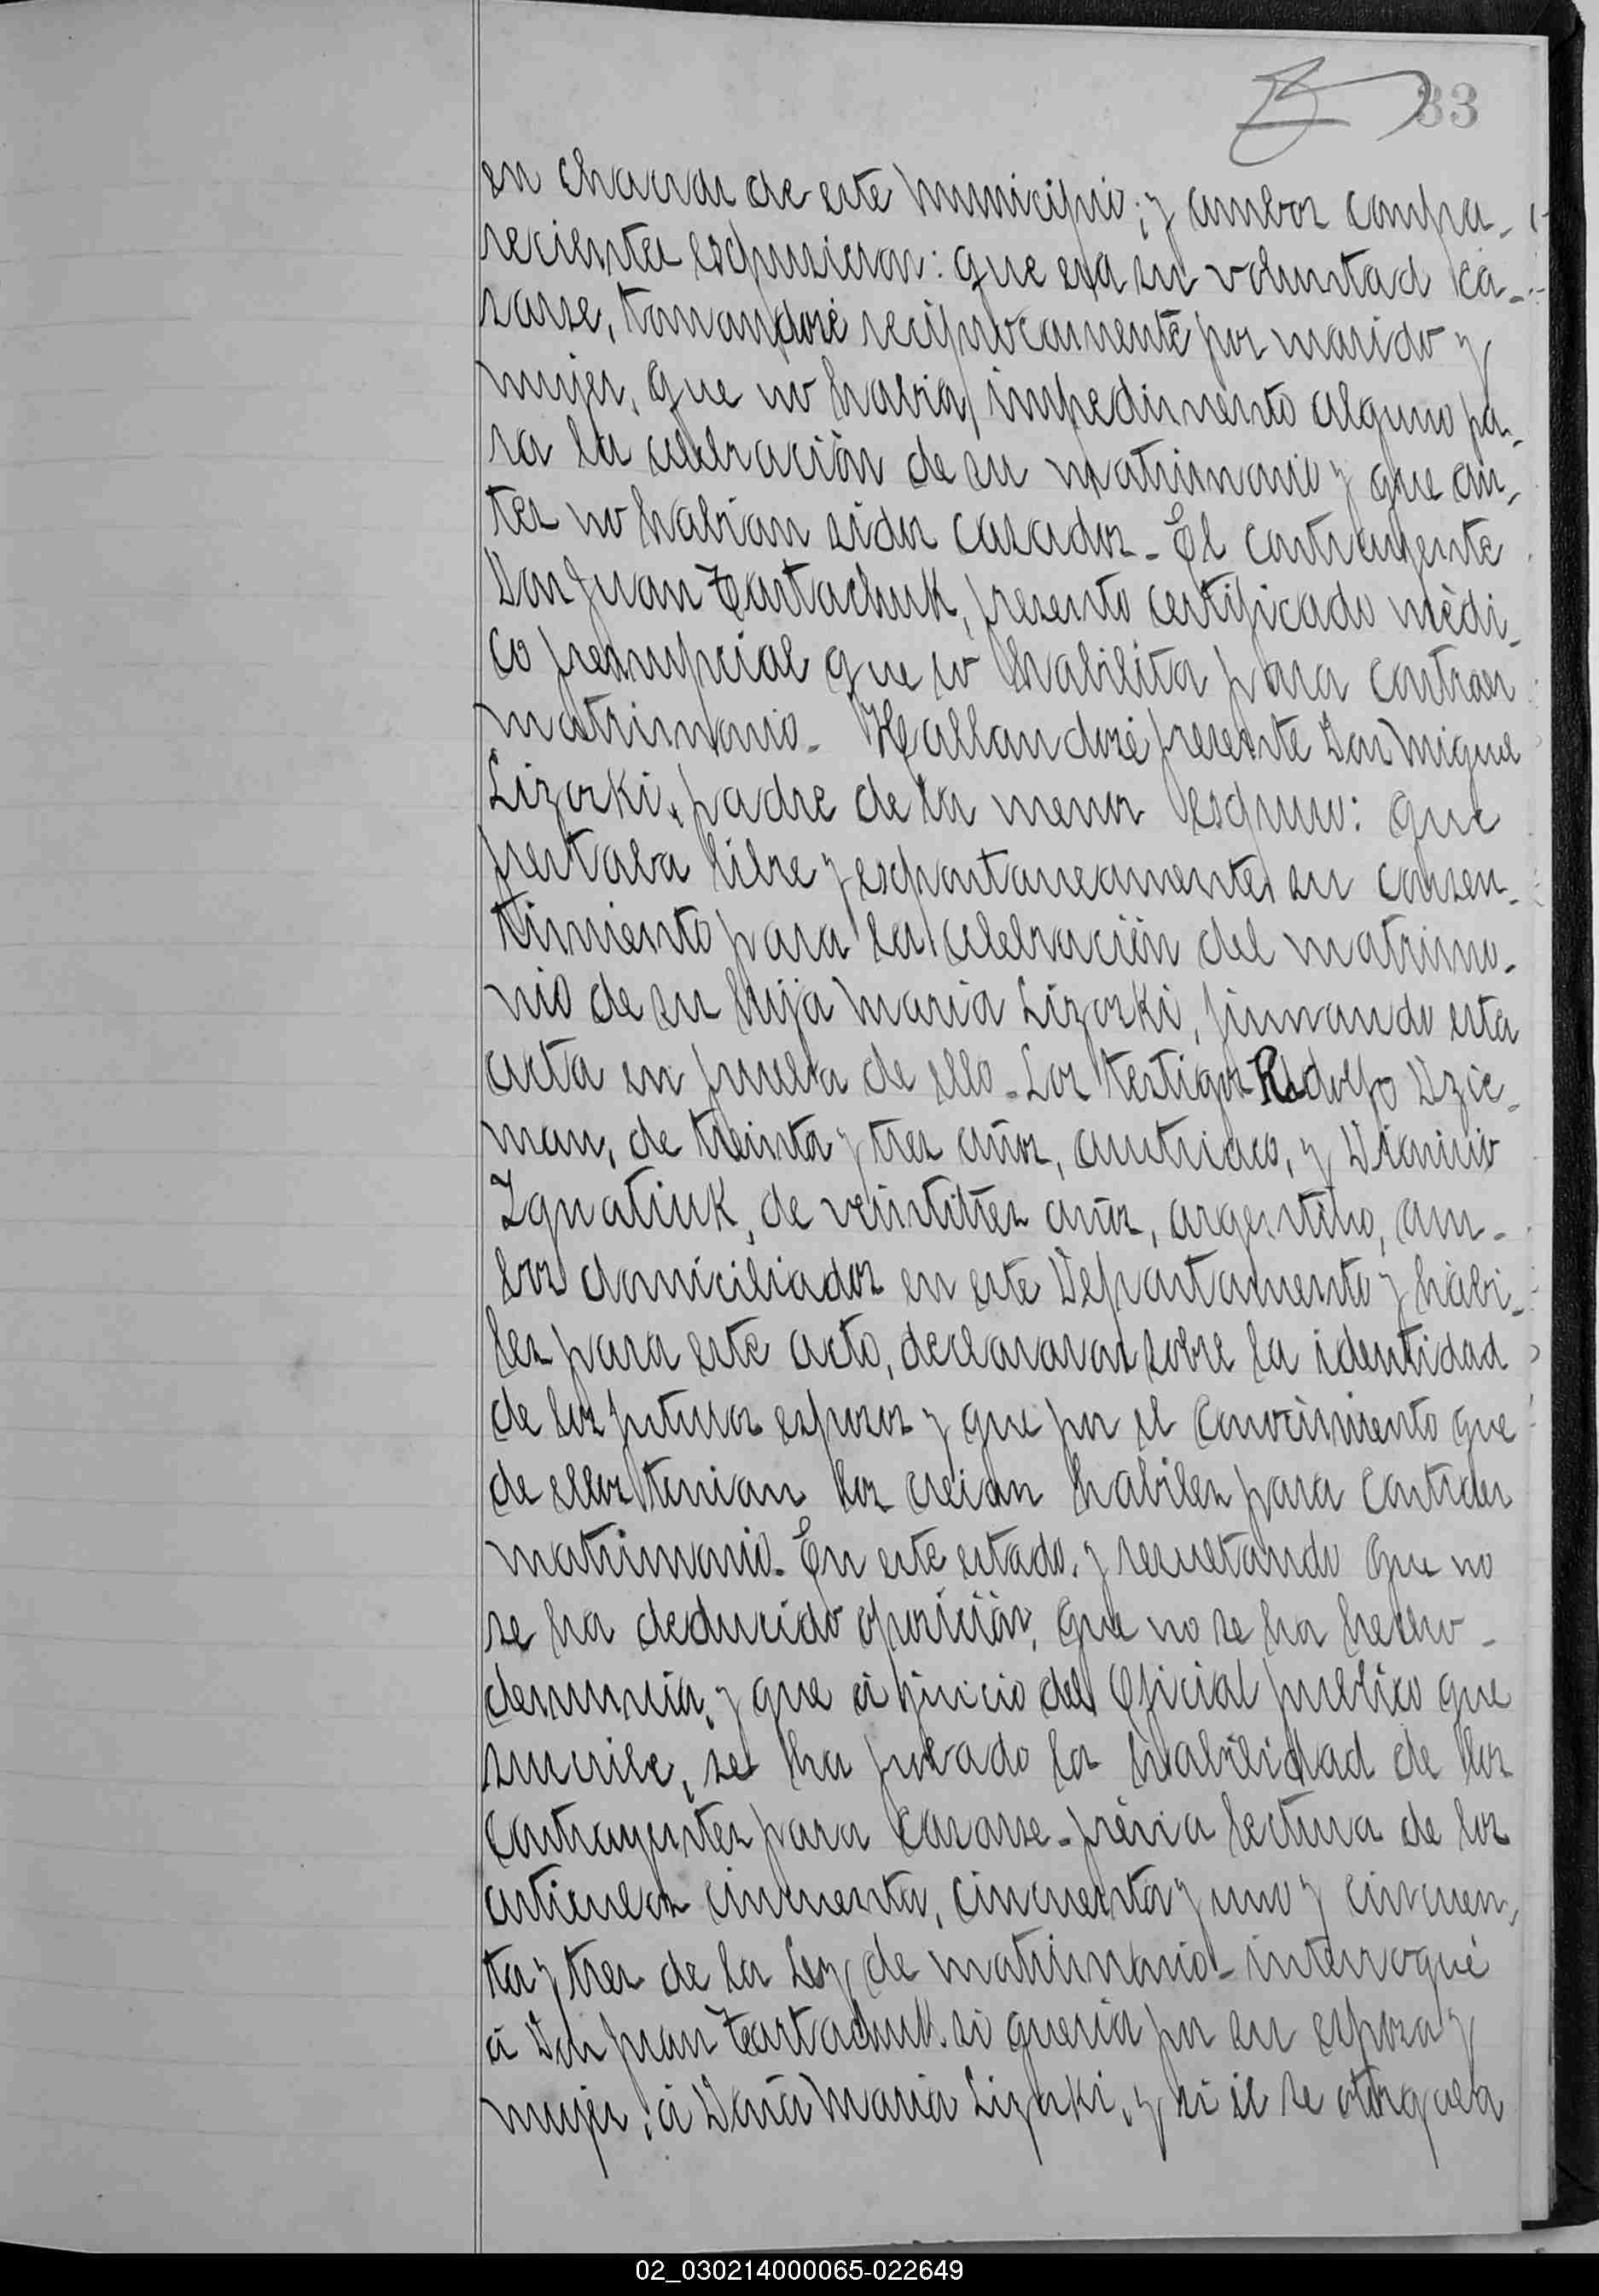 33
en chacras de este Municipio; y ambos compa-
recientes expusieron: que era su voluntad ca-
sarse, tomandosé reciprocamente por marido y
mujer, que no habia impedimento alguno pa-
ra la celebración de su matrimonio y que an-
tes no habian sidos casados - El contrayente
Don Juan Tartachuk, presento certificado médi-
co prenupcial que lo habilita para contraer
matrimonio - Hallandosé presente Don Miguel
Lizoski, padre de la menor expuso: que
prestaba libre y espontaneamente su consen-
timiento para la celebración del matrimo-
nio de su hija Maria Lizoski, firmando esta
acta en prueba de ello - Los testigos Rodolfo Dzic-
man, de treinta y tres años, austriaco, y Dionicio
Ignatiuk, de veintitres años, argentino, am-
bos domiciliados en este Departamento y hábi-
les para este acto, declararon sobre la identidad
de los futuros esposos y que por el conocimiento que
de ellos tenian los creian habiles para contraer
matrimonio - En este estado, y resultando que no
se ha deducido oposición, que no se ha hecho -
denuncia, y que á juicio del Oficial publico que
suscribe, se ha probado la habilidad de los
contrayentes para casarse - prévia lectura de los
articulos cincuenta, cincuenta y uno y cincuen-
ta y tres de la Ley de matrimonio - interrogué
á Don Juan Tartachuk si queria por su esposa y
mujer, á Doña Maria Lizoski, y si él se otorgaba
02_030214000065-022649